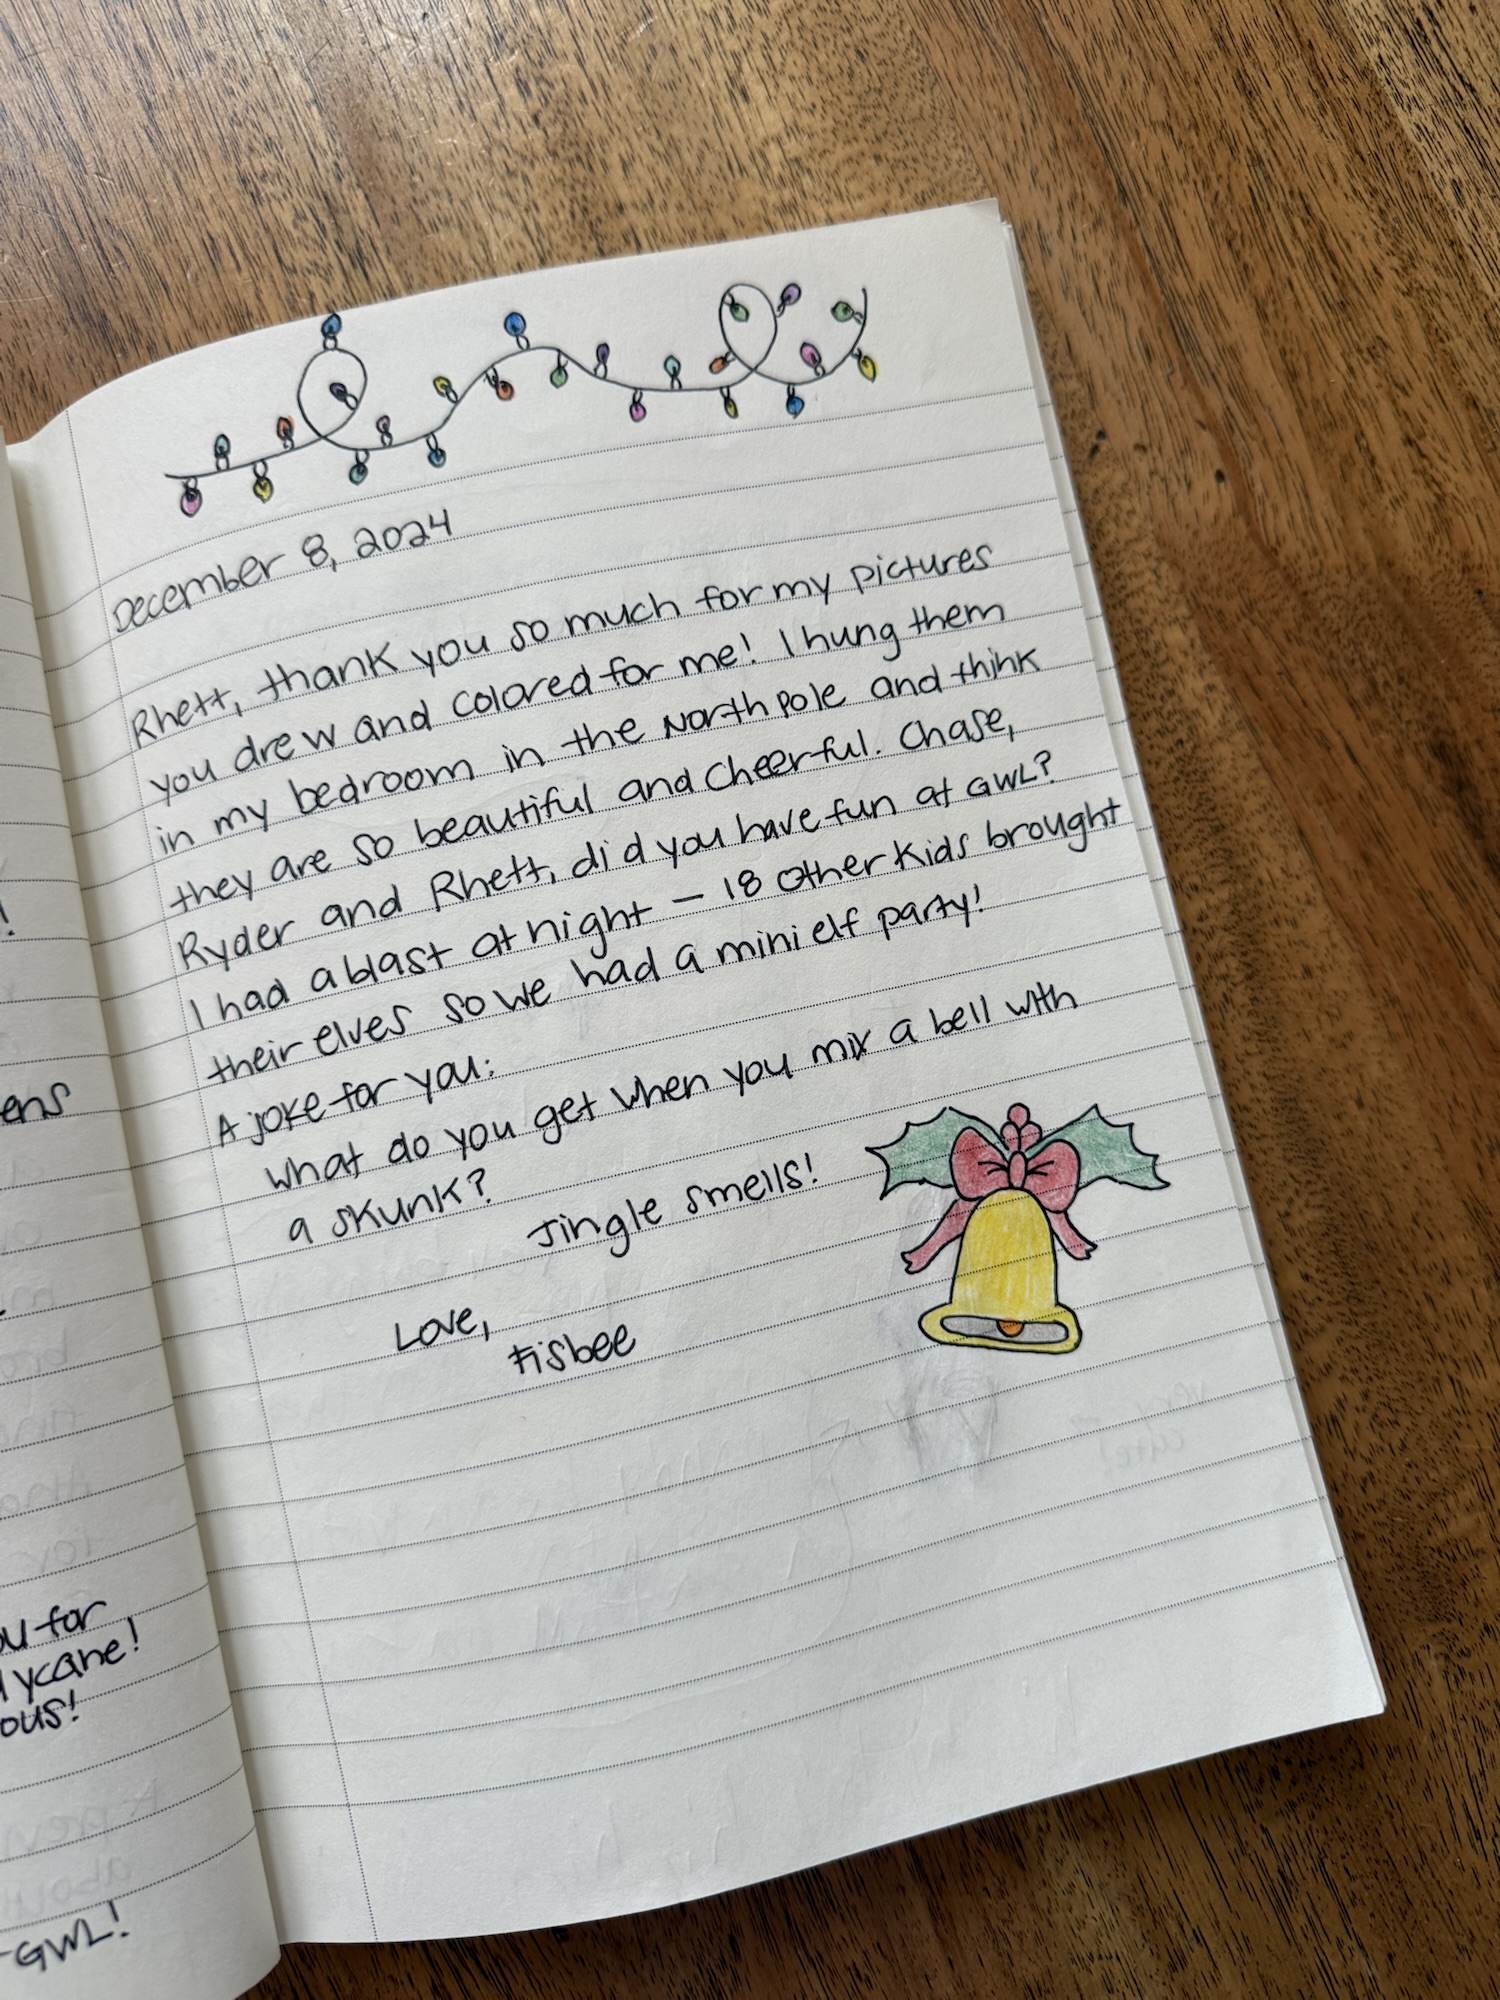 December 8, 2024
Rhett, thank you so much for my pictures
you drew and colored for me! I hung them
in my bedroom in the North pole and think
they are so beautiful and cheerful. Chase,
Ryder and Rhett, did you have fun at GWL?
I had a blast at night – 18 other kids brought
their elves so we had a mini elf party!
A joke for you:
what do you get when you mix a bell with
a skunk?
Jingle smells!
Love,
Fisbee
ens
ou for
ycane!
ous!
GWL!